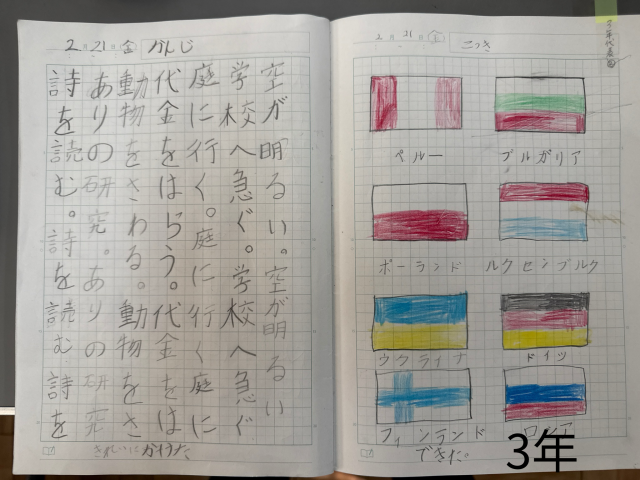 2月21日金 かんじ
空が明るい。空が明るい
学校へ急ぐ。学校へ急ぐ
庭に行く。庭に行く庭に
代金をはらう。代金をは
動物をさわる。動物をさ
ありの研究。ありの研究
詩を読む。詩を読む詩を
きれいにかけた
2月21日 土 こっき
ペルー ブルガリア
ポーランド ルクセンブルク
ウクライナ ドイツ
フィンランド ロシア
できた。
3年